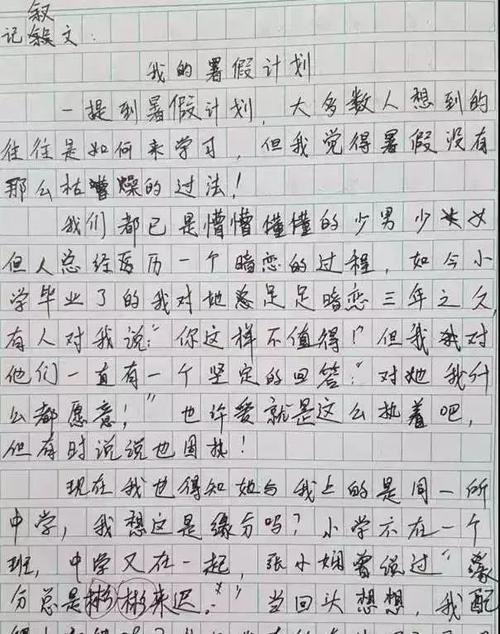 叙
记叙文:
我的暑假计划
一提到暑假计划,大多数人想到的
往往是如何来学习,但我觉得暑假没有
那么枯燥的过法!
我们都已是懵懵懂懂的少男少女
但人总经历一个暗恋的过程,如今小
学毕业了的我对她足足暗恋三年之久
有人对我说:“你这样不值得!”但我对
他们一直有一个坚定的回答:“对她我什
么都愿意!”也许爱就是这么执着吧,
但有时说说也固执!
现在我也得知她与我上的是同一所
中学,我想这是缘分吗?小学不在一个
班,中学又在一起,张小娴曾说过“缘
分总是彬彬来迟。”当回头想想,我配